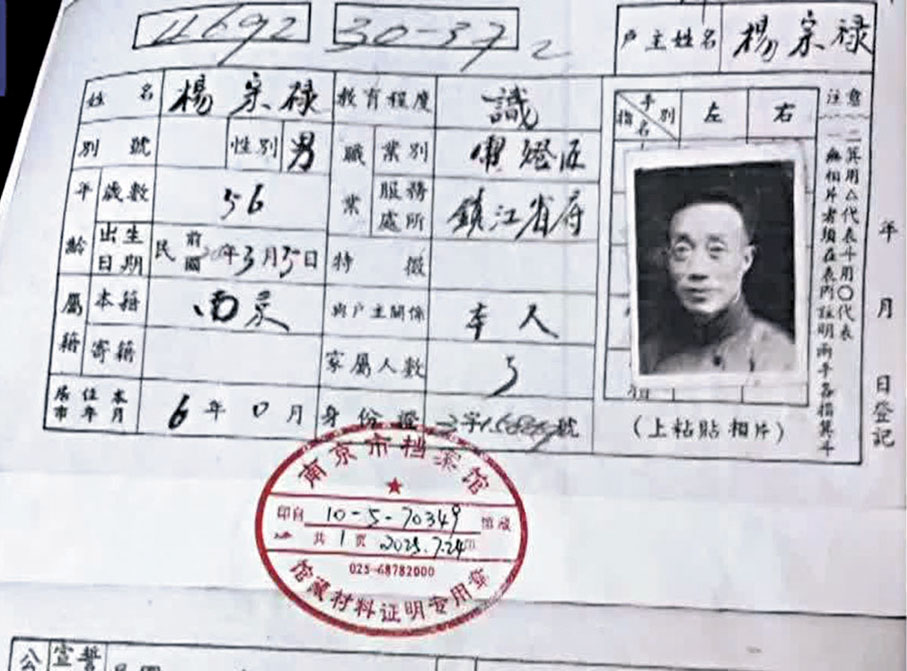 11692 30-37 2
戶主姓名 楊宗祿
姓名 楊宗祿 教育程度 識
別號 性別 男 職業 業別
年齡 歲數 56 服務處所 鎮江省府
出生日期 民國前 年3月5日 特徵
屬籍 本籍 南京 與戶主關係 本人
寄籍 家屬人數 5
居住本市年月 6年0月 身份證 字 號
手別 指名 左 右
(上粘貼相片)
注意
一無相片者須在表內註明兩手各指箕斗
二箕用△代表斗用〇代表
年 月 日登記
南京市档案馆
印自 10-5-70349 馆藏
共1页 2025.7.24
025-68782000
馆藏材料证明专用章
公 宣誓